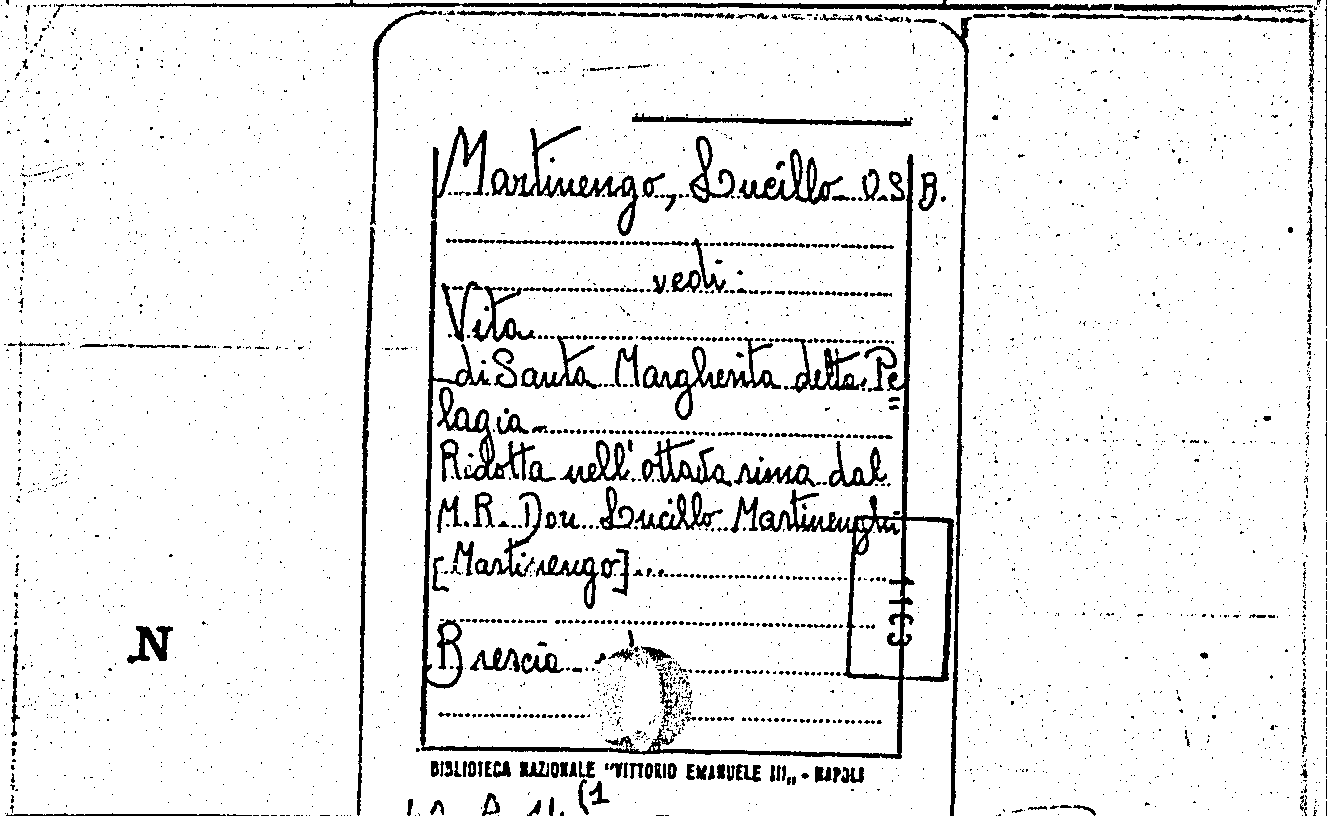 Martinengo, Lucillo O.S.B.
vedi:
Vita
di Santa Margherita detta Pe=
lagia
Ridotta nell'ottava rima dal
M.R. Don Lucillo Martinenghi
[Martinengo]...
1163
N
Brescia
BIBLIOTECA NAZIONALE "VITTORIO EMANUELE III„ - NAPOLI
(1